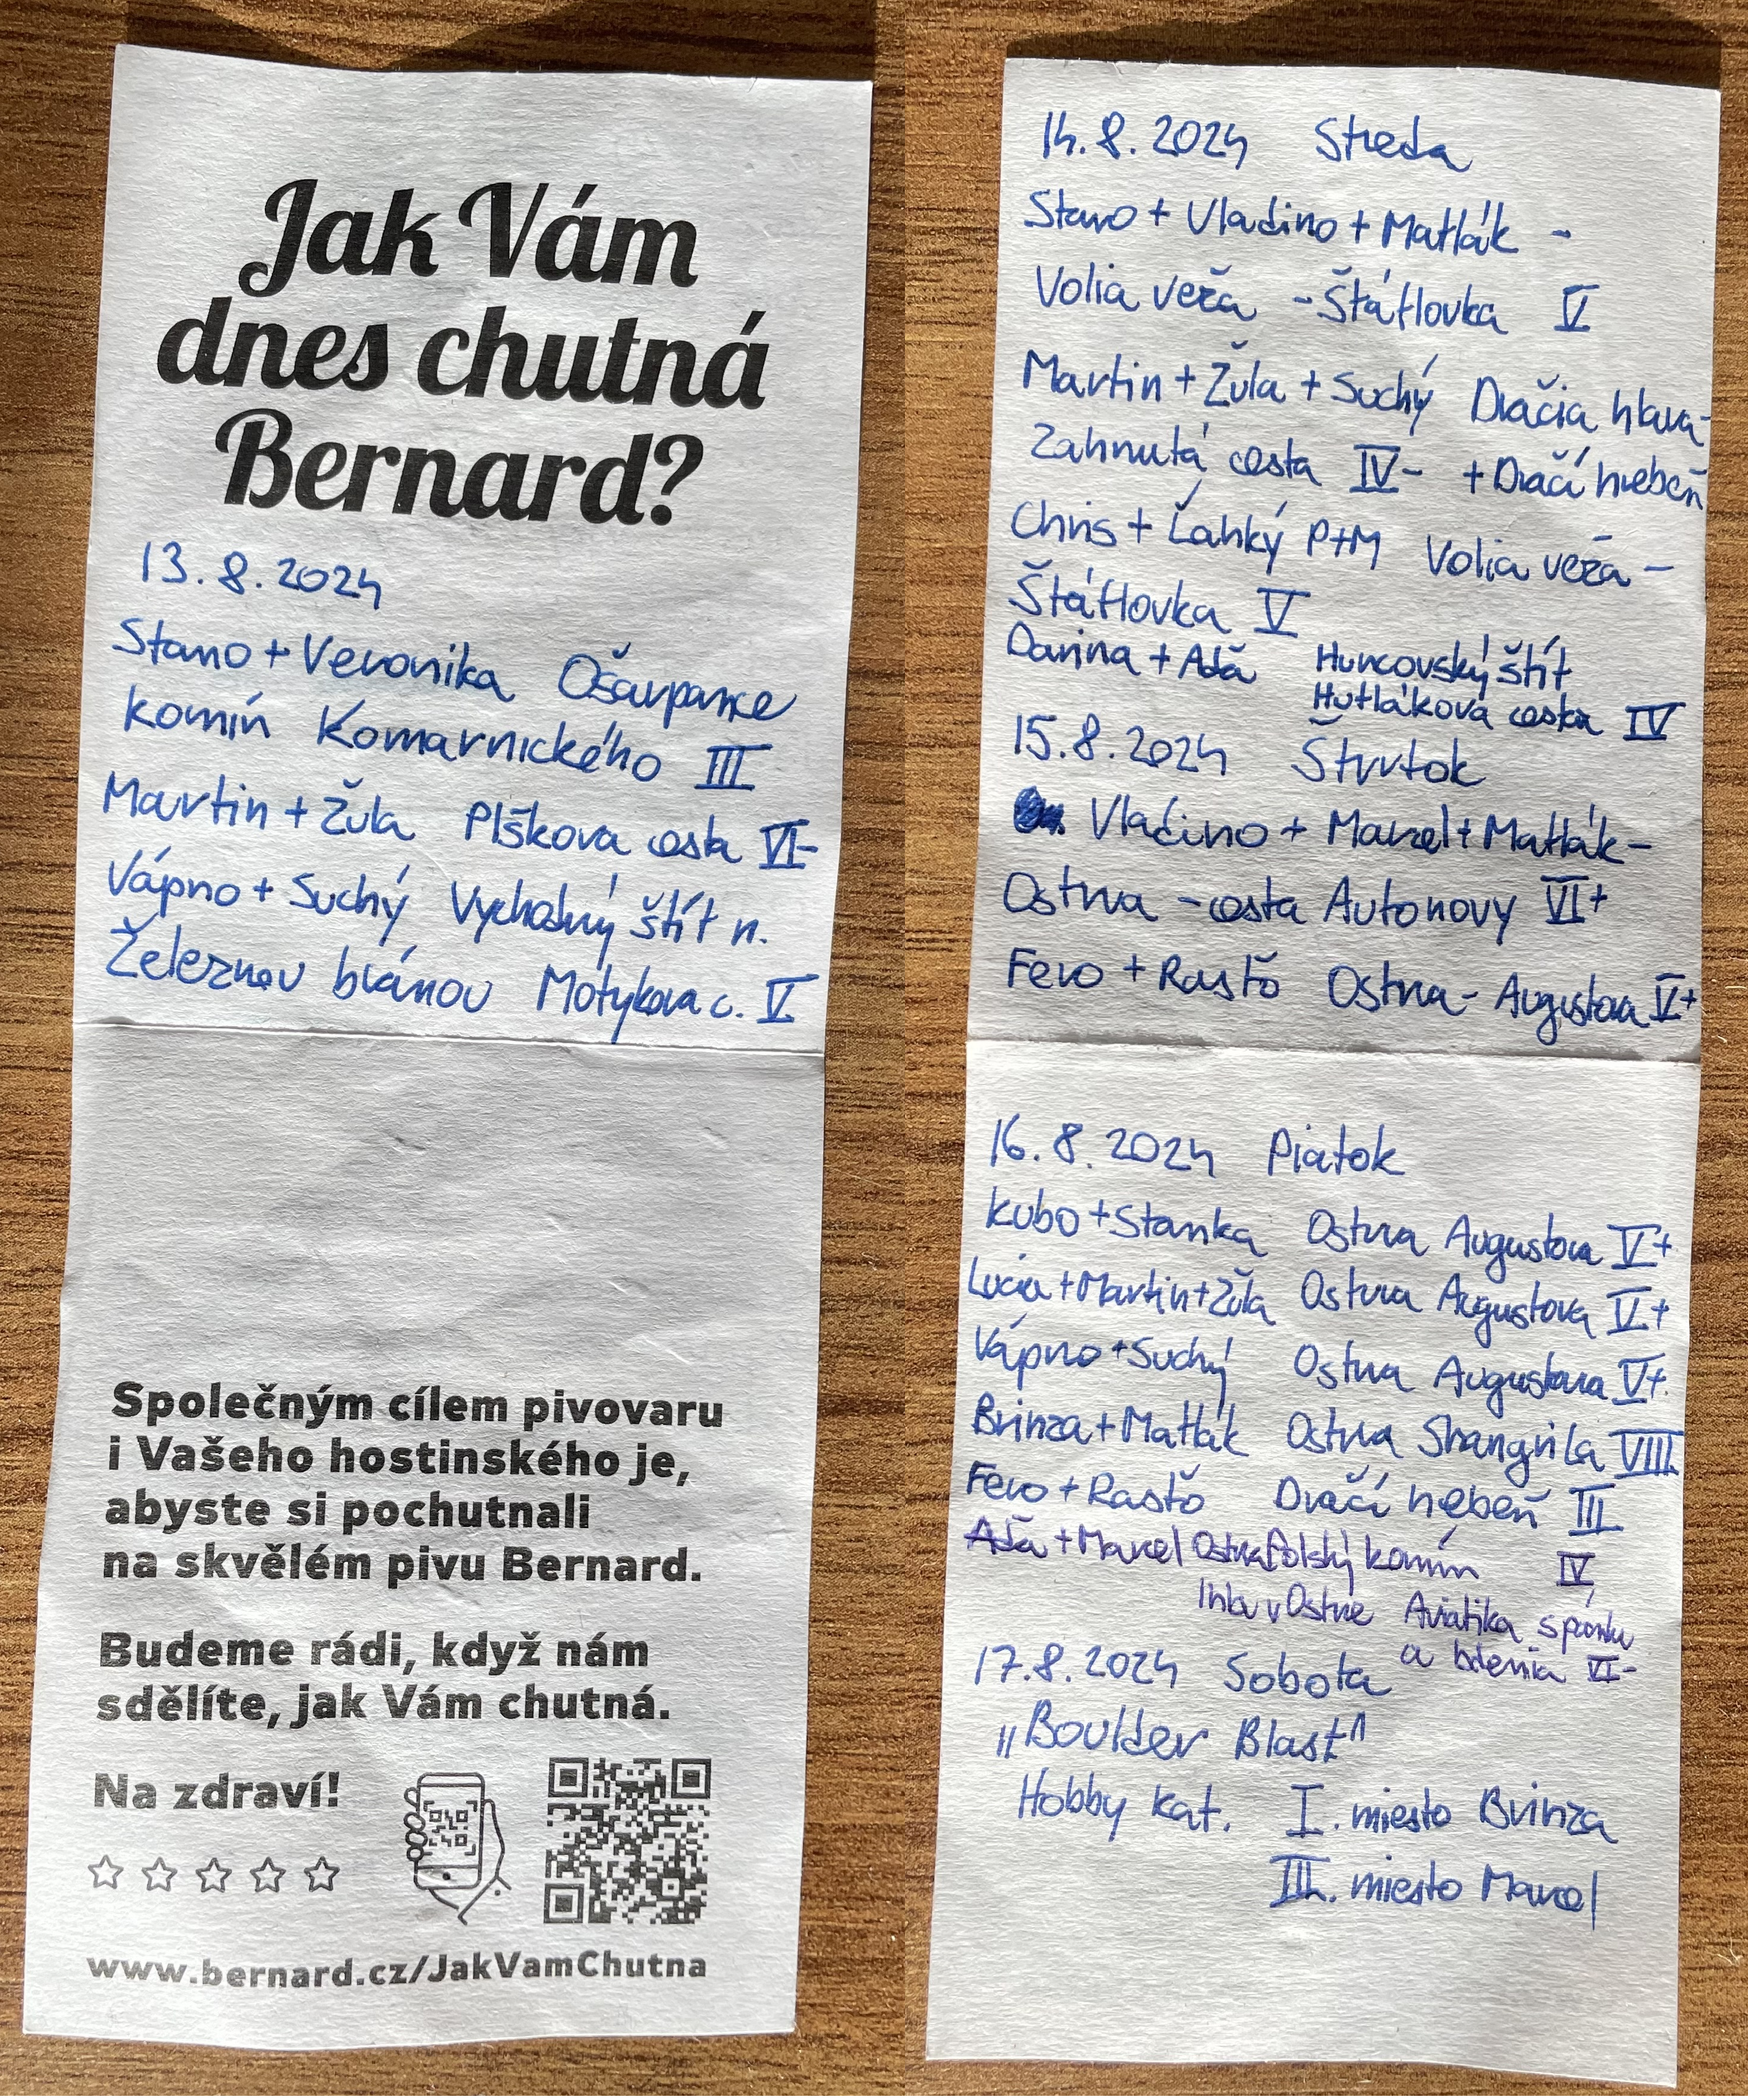 Jak Vám
dnes chutná
Bernard?
13.8.2024
Stano + Veronika Ošarpance
komín Komarnického III
Martin + Žula Plškova cesta VI-
Vápno + Suchý Vychodný štít n.
Železnou bránou Motykova c. V
Společným cílem pivovaru
i Vašeho hostinského je,
abyste si pochutnali
na skvělém pivu Bernard.
Budeme rádi, když nám
sdělíte, jak Vám chutná.
Na zdraví!
www.bernard.cz/JakVamChutna
14.8.2024 Streda
Stano + Vladino + Matlák -
Volia veža - Štáflovka V
Martin + Žula + Suchý Dračia hlava-
Zahnutá cesta IV- + Dračí hrebeň
Chris + Ľahký P+M Volia veža -
Štáflovka V
Darina + Aďa Huncovský štít
Hutláková cesta IV
15.8.2024 Štvrtok
Vlaďino + Marcel + Matlák -
Ostrva - cesta Autonovy VI+
Fero + Rasťo Ostrva - Augustova V+
16.8.2024 Piatok
Kubo + Stanka Ostrva Augustova V+
Lucia + Martin + Žula Ostrva Augustova V+
Vápno + Suchý Ostrva Augustova V+
Brinza + Matlák Ostrva Shangrila VIII
Fero + Rasťo Dračí hrebeň III
Aďa + Marcel Ostrva Poľský komín IV
Ihla v Ostrve Aviatika spánku
a bdenia VI-
17.8.2024 Sobota
"Boulder Blast"
Hobby kat. I. miesto Brinza
III. miesto Marcel